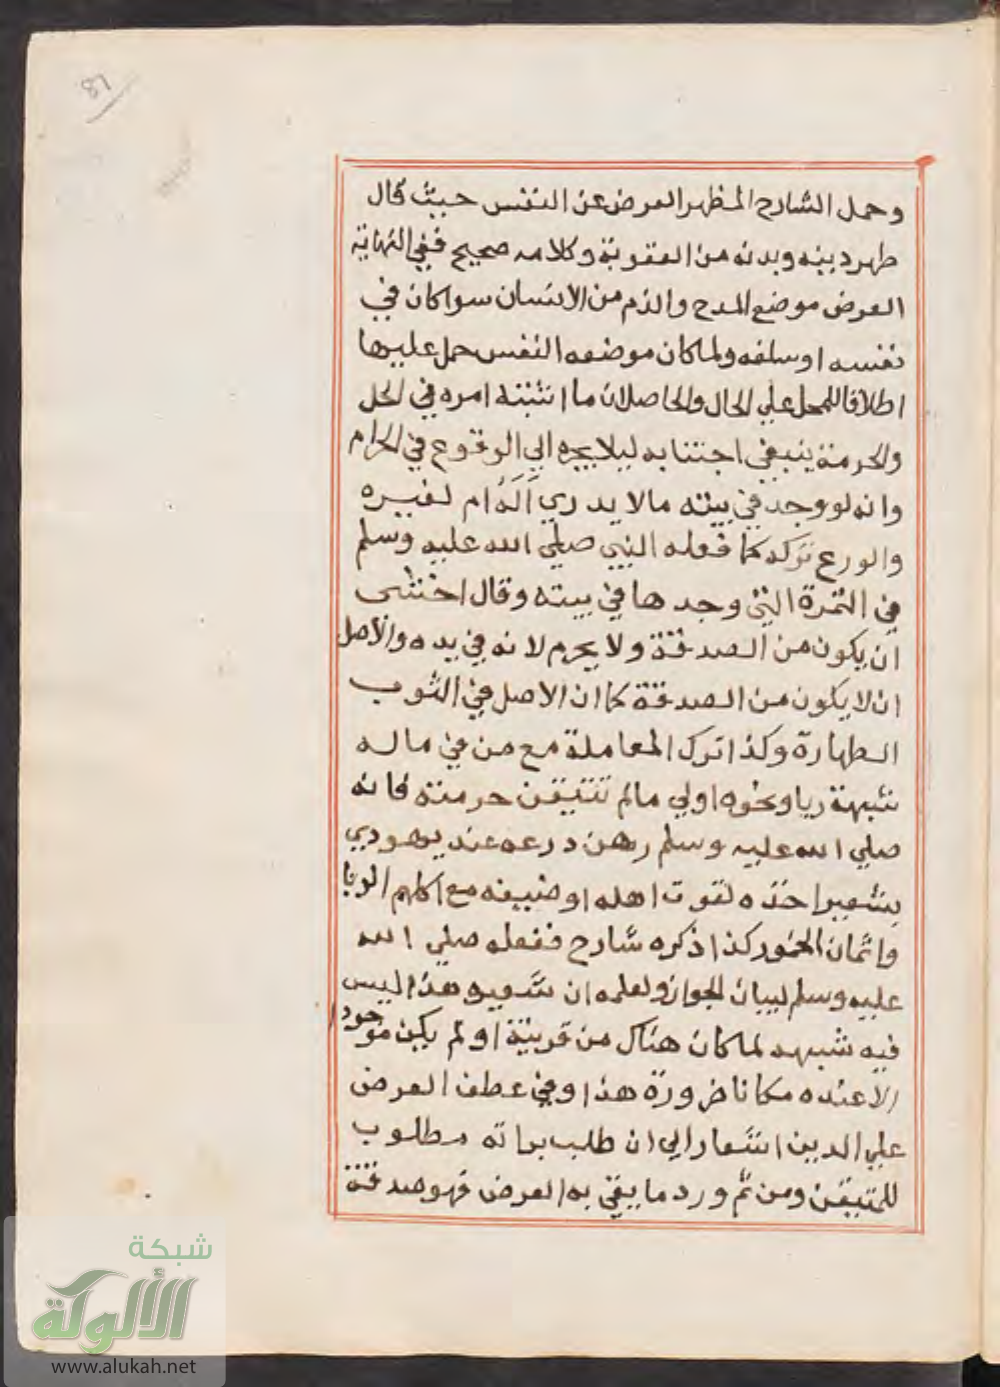 87
وحمل الشارح المظهر العرض عن النفس حيث قال
طهر دينه وبدنه من العقوبة وكلامه صحيح ففي النهاية
العرض موضع المدح والذم من الانسان سوا كان في
نفسه او سلفه ولما كان موضعه النفس حمل عليها
اطلاقا للمحل علي الحال والحاصل ان ما اشتبه امره في الحل
والحرمة ينبغي اجتنابه ليلا يجره الي الوقوع في الحرام
وانه لو وجد في بيته مالا يدري أله ام لغيره
والورع تركه كما فعله النبي صلي الله عليه وسلم
في التمرة التي وجدها في بيته وقال اخشى
ان يكون من الصدقة ولا يحرم لانه في يده والاصل
ان لا يكون من الصدقة كما ان الاصل في الثوب
الطهارة وكذا ترك المعاملة مع من في ماله
شبهة ربا ونحوه اولي مالم تتيقن حرمته فانه
صلي الله عليه وسلم رهن درعه عند يهودي
بشعير اخذه لقوت اهله او ضيفه مع اكلهم الربا
واثمان الخمور كذا ذكره شارح ففعله صلي الله
عليه وسلم لبيان الجواز ولعلمه ان شعيره هذا ليس
فيه شبهه لما كان هناك من قرينة او لم يكن موجودا
الا عنده فكان ضرورة هذا وفي عطف العرض
علي الدين اشعار الي ان طلب براته مطلوب
للمتيقن ومن ثم ورد ما يقي به العرض فهو صدقة
شبكة
الألوكة
www.alukah.net